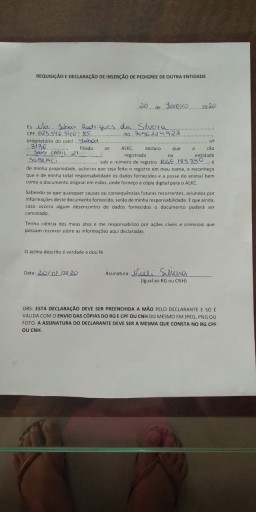 REQUISIÇÃO E DECLARAÇÃO DE INSERÇÃO DE PEDIGREE DE OUTRA ENTIDADE
20 de Janeiro 2020
Eu Rodrigues da Silveira
CPF RG
proprietário do canil nº
filiado ao declaro que o cão
registrado na entidade
SOBRACI sob o número de registro é
de minha propriedade, autorizo que seja feito o registro em meu nome, e reconheço
que é de minha total responsabilidade os dados fornecidos e a posse do animal bem
como o documento original em mãos, onde forneço a cópia digital para o
Sabendo se que quaisquer causas ou consequências futuras recorrentes, oriundos por
informações deste documento fornecido, serão de minha responsabilidade. E que ainda
caso ocorra algum desencontro de dados fornecidos o documento poderá ser
cancelado.
Tenho ciência dos meus atos e me responsabilizo por ações cíveis e criminais que
possam recorrer sobre as informações aqui declaradas.
O acima descrito é verdade e dou fé
Data: 20/01/2020 Assinatura: Silveira
(igual ao RG ou CNH)
OBS: ESTA DECLARAÇÃO DEVE SER PREENCHIDA A MÃO PELO DECLARANTE E SÓ É
VÁLIDA COM O ENVIO DAS CÓPIAS DO RG E CPF OU CNH DO MESMO EM JPEG, PNG OU
FOTO. A ASSINATURA DO DECLARANTE DEVE SER A MESMA QUE CONSTA NO RG CPF
OU CNH.